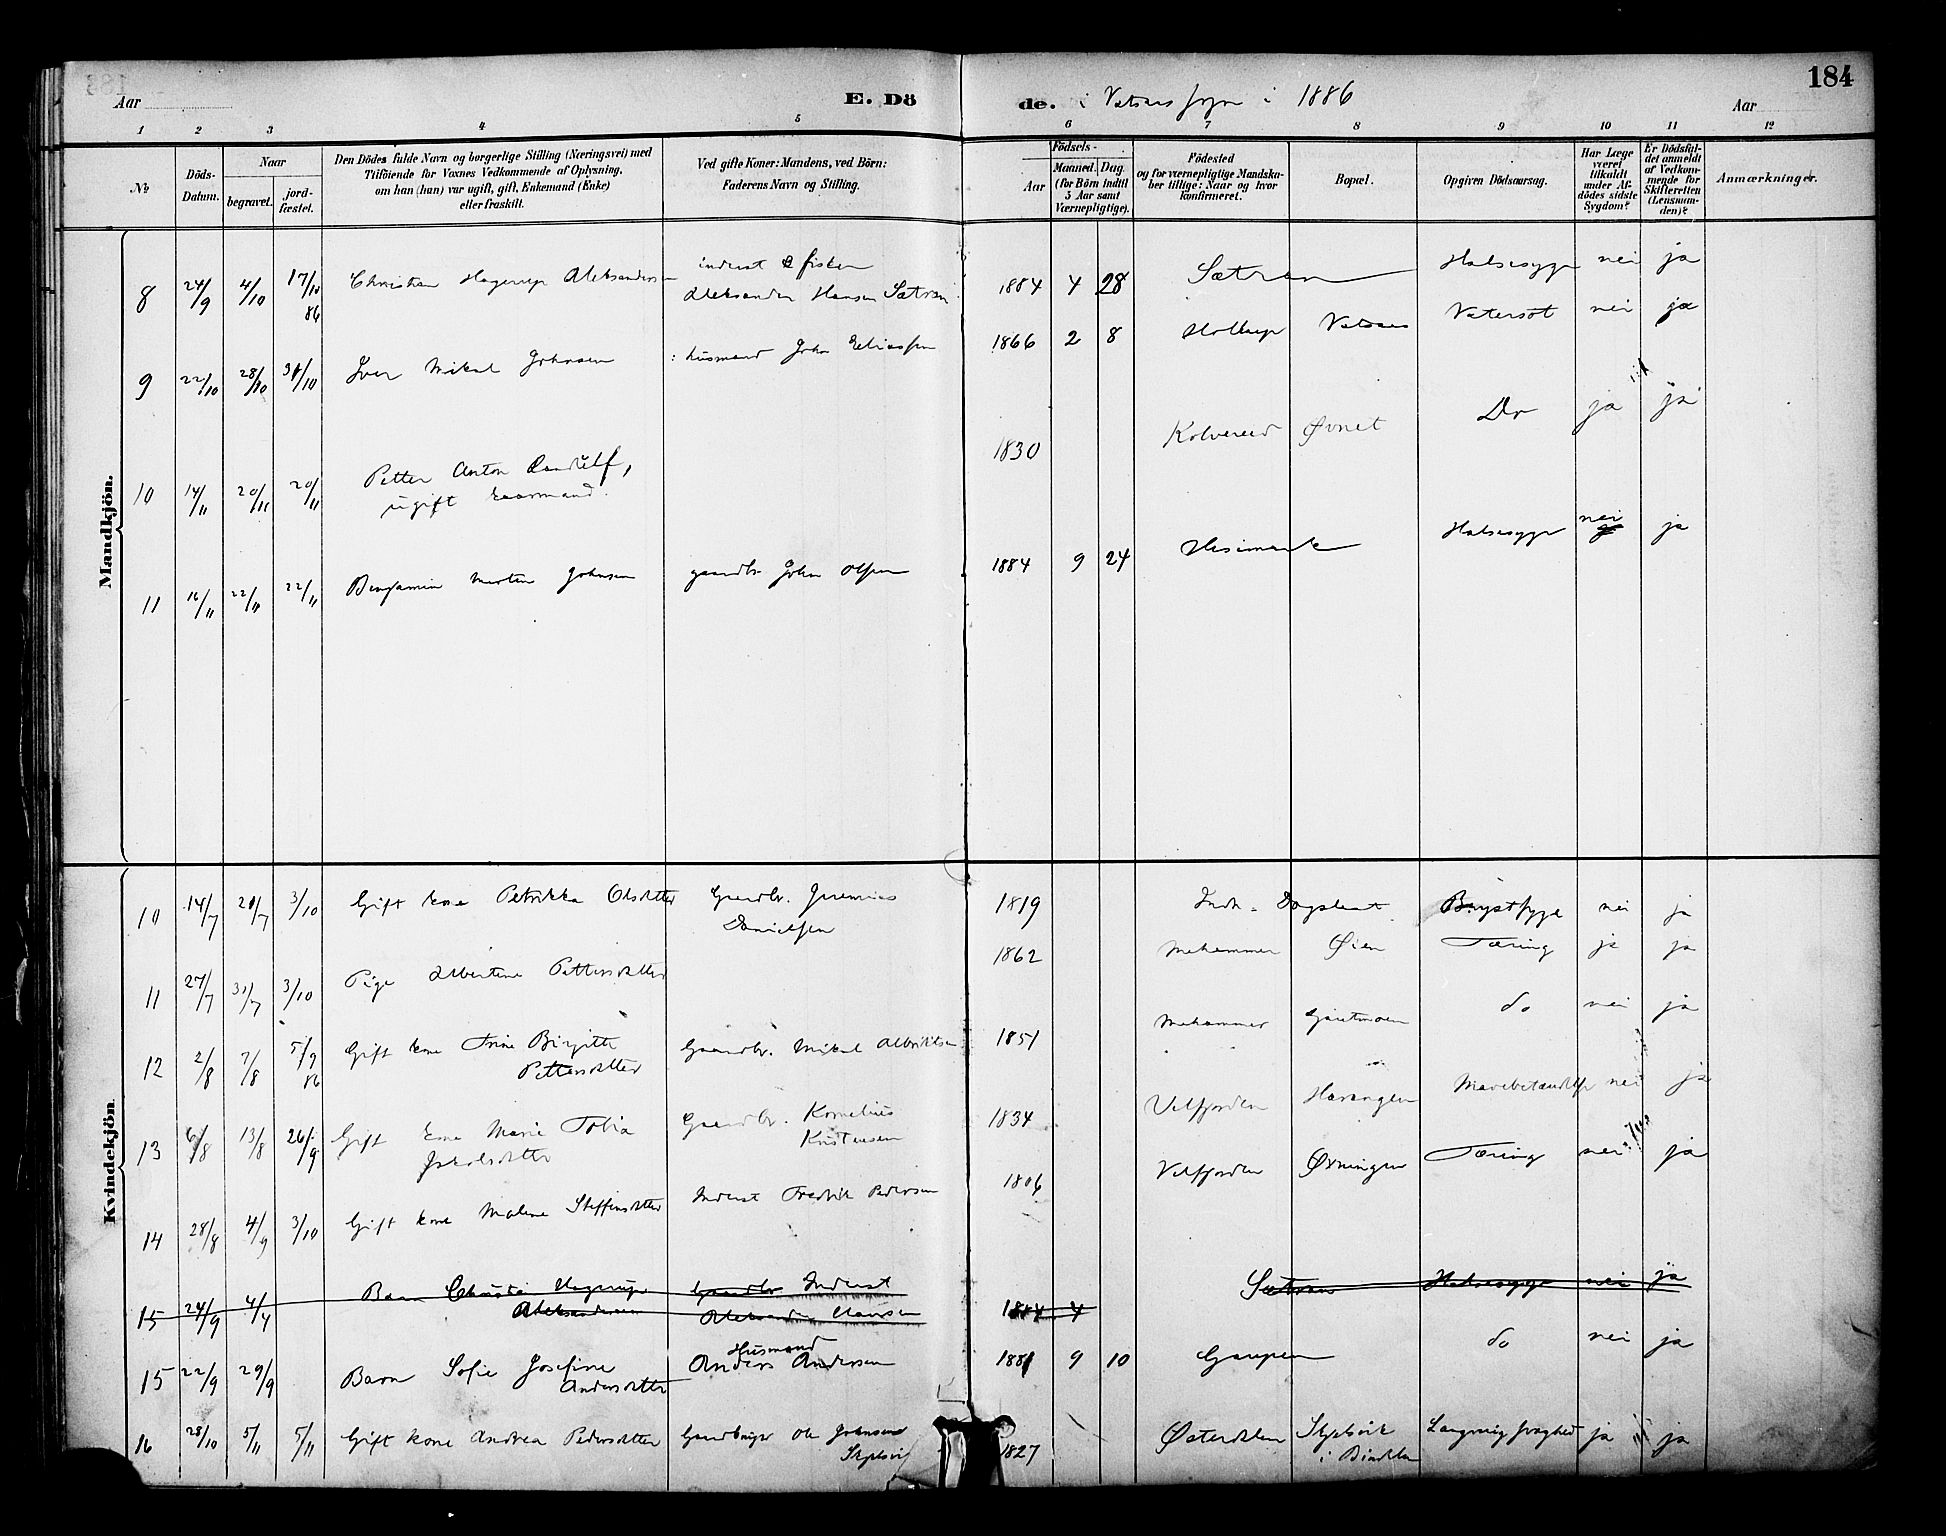 184
Aar
E. Dö
de. i Vatsaas sogn i 1886
Aar
1 2 3 4 5 6 7 8 9 10 11 12
No
Döds-Datum.
Naar
begravet.
jord-fæstet.
Den Dödes fulde Navn og borgerlige Stilling (Næringsvei) med
Tilföiende for Voxnes Vedkommende af Oplysning,
om han (hun) var ugift, gift, Enkemand (Enke)
eller fraskilt.
Ved gifte Koner: Mandens, ved Börn:
Faderens Navn og Stilling.
Födsels-
Aar
Maaned. Dag.
(for Börn indtil
5 Aar samt
Værnepligtige).
Födested
og for værnepligtige Mandska-
ber tillige: Naar og hvor
konfirmeret.
Bopæl.
Opgiven Dödsaarsag.
Har Læge
været
tilkaldt
under Af-
dödes sidste
Sygdom?
Er Dödsfal-
det anmeldt
af Vedkom-
mende for
Skifteretten
(Lensman-
den)?
Anmærkninger.
Mandkjön.
8 24/9 4/10 17/10 86 Christian Hagerup Aleksandersen inderst & fisker
Aleksander Hansen Sætran 1884 4 28 Sætran Halssyge nei ja
9 22/10 28/10 31/10 Iver Mikal Johnsen husmand John Eliassen 1866 2 8 Holtup Vatsaas Vatersot nei ja
10 14/11 20/11 20/11 Petter Anton
ugift 1830 Kolvereid Øvnet Do ja ja
11 16/11 22/11 22/11 Benjamin Morten Johnsen gaardbr. John Olsen 1884 9 24 Halssyge nei ja
Kvindekjön.
10 14/7 20/7 3/10 Gift kone Petrikka Olsdatter Gaardbr. Jeremias
Danielsen 1819 Indr. Dagslaat Brystsyge nei ja
11 27/7 31/7 3/10 Pige Albertine Pettersdatter 1862 Mohammer Øien Tæring ja ja
12 2/8 7/8 5/9 86 Gift kone Trine Birgitte
Pettersdatter Gaardbr. Mikal Albriktsen 1851 Mohammer do nei ja
13 6/8 13/8 26/9 Gift kone Marie Tobia
Jakobsdatter Gaardbr. Kornelius
Kristensen 1834 Velfjorden Horangen nei ja
14 28/8 4/9 3/10 Gift kone Malene Steffensdatter Inderst Fredrik Pedersen 1806 Velfjorden Øxningen Tæring nei ja
15 24/9 4/4 Barn Christian Hagerup
Aleksandersen Gaardbr Inderst
Aleksander Hansen 1884 4 Sætran Halssyge nei ja
15 22/9 29/9 Barn Sofie Josefine
Andersdatter Husmand
Anders Andersen 1881 9 10 Gaupen do nei ja
16 28/10 5/11 5/11 Gift kone Andrea Pedersdatter Gaardbruger Ole Johnsen
Skjelsvik 1827 Østerdalen Skjelsvik
i Bindalen Langvarig svaghed ja ja